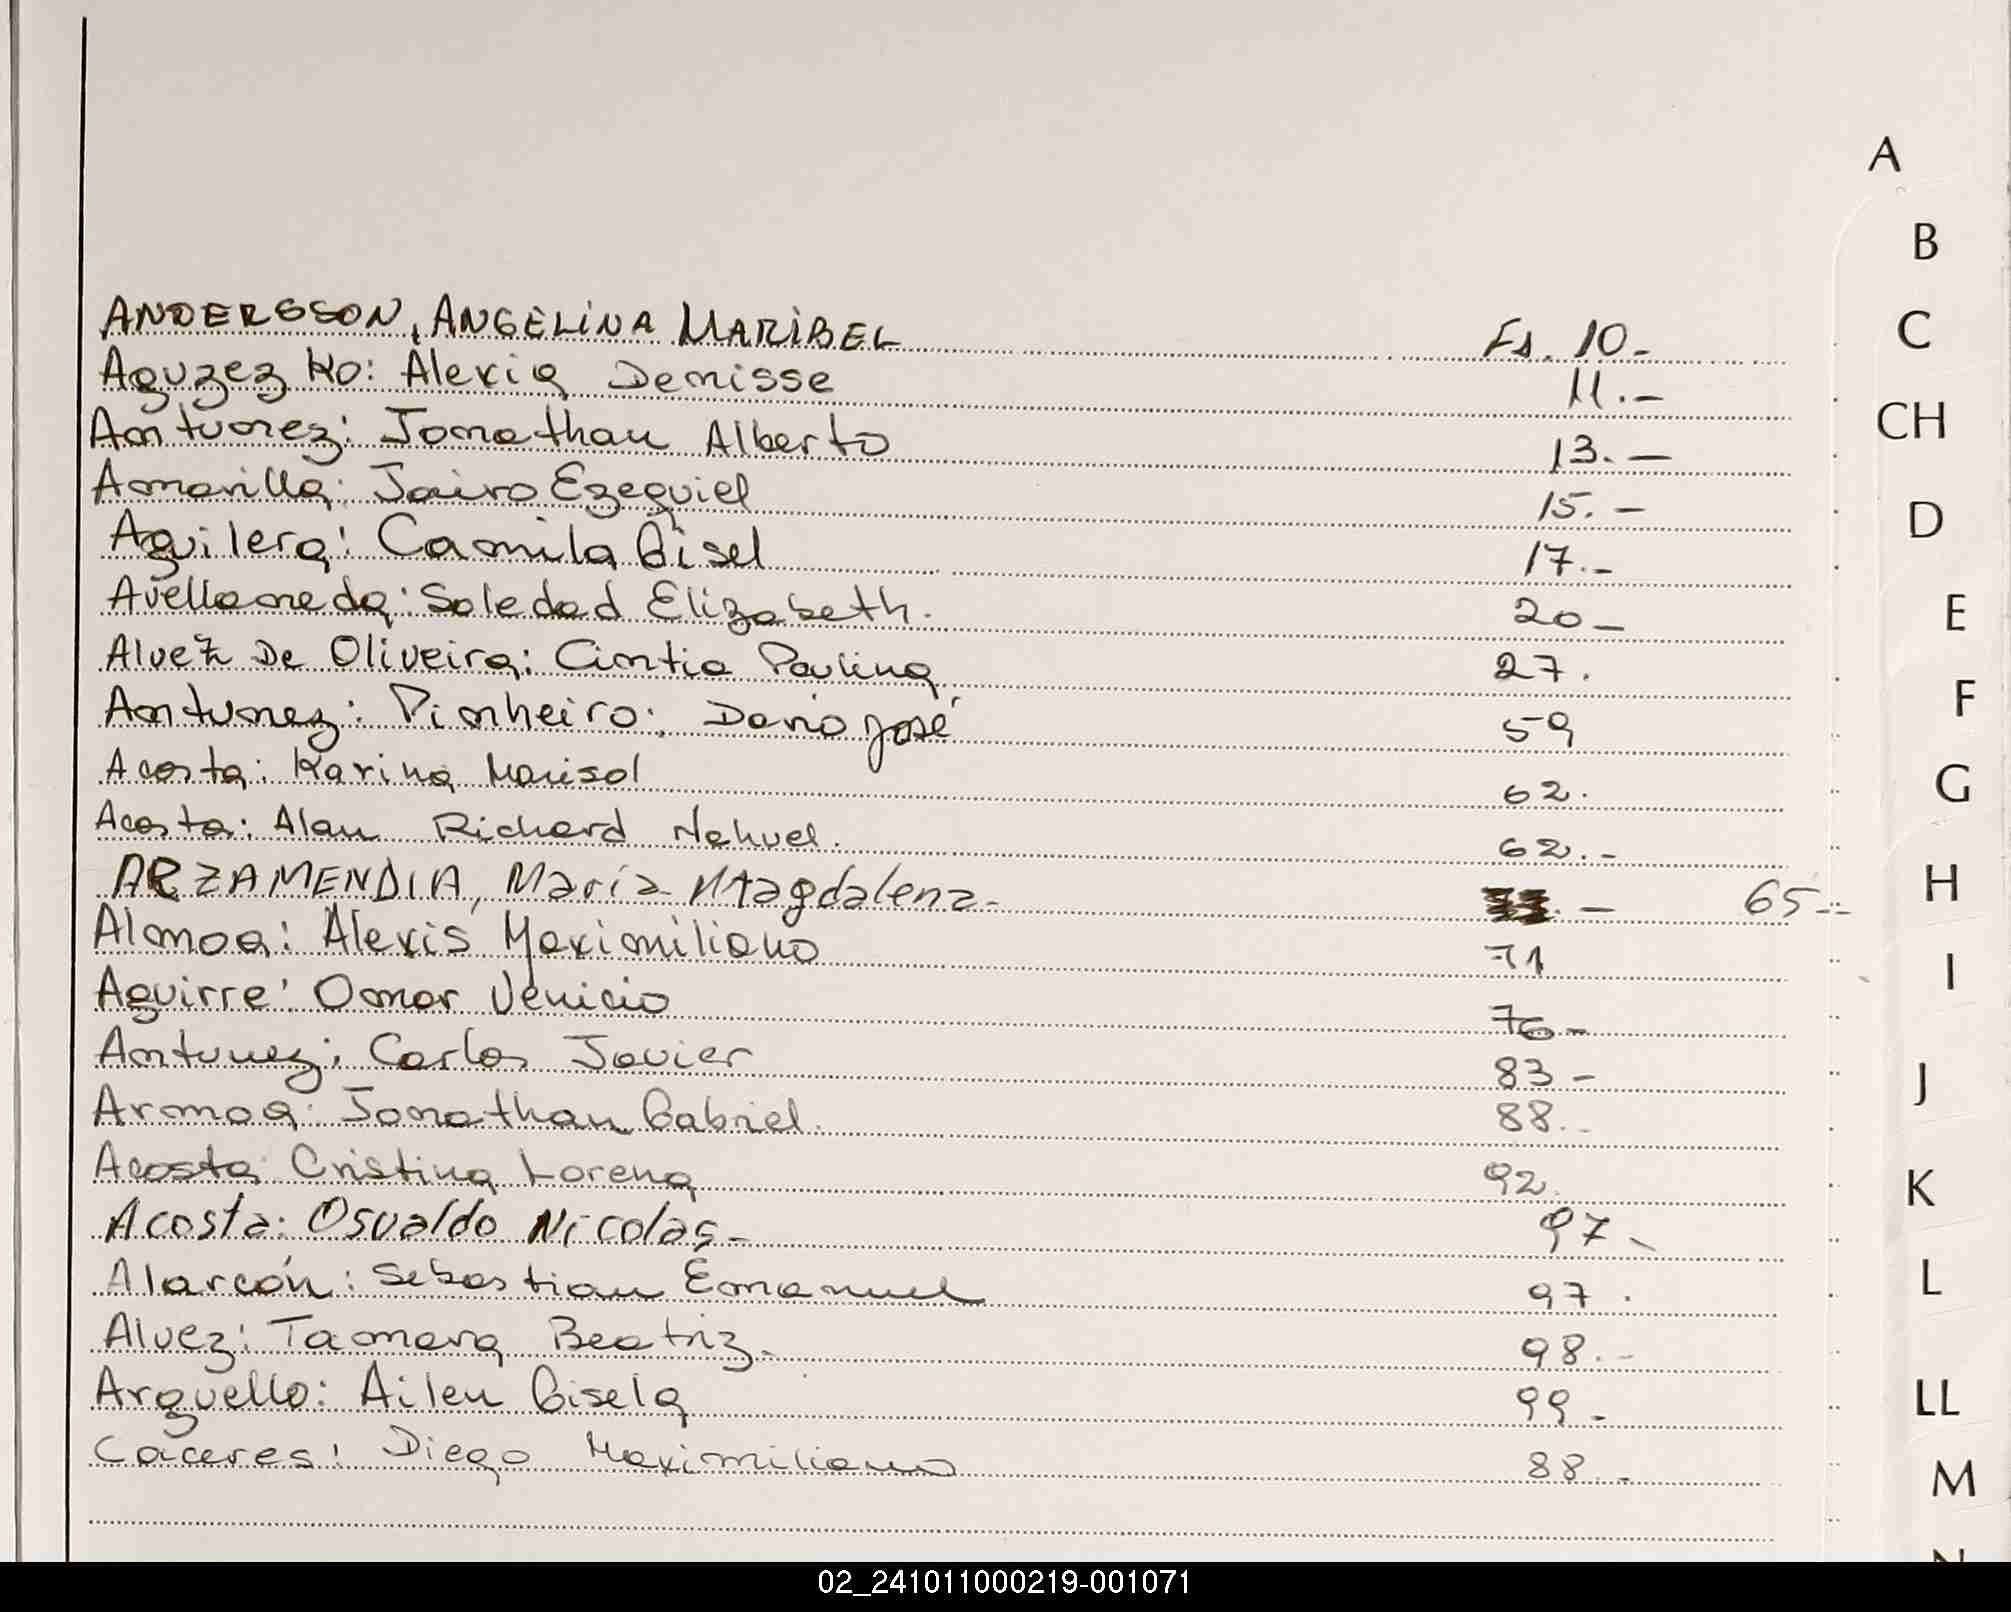 ANDERSSON, ANGELINA MARIBEL Fs. 10.-
Aguzez Ko: Alexia Denisse 11.-
Antunez: Jonathan Alberto 13.-
Amarilla: Jairo Ezequiel 15.-
Aguilera: Camila Gisel 17.-
Avellaneda: Soledad Elizabeth. 20-
Alvez De Oliveira: Cintia Paulina 27.
Antunez: Pinheiro: Dario José 59
Acosta: Karina Marisol 62.
Acosta: Alan Richard Nehuel. 62.-
ARZAMENDIA, María Magdalena- - 65--
Almoa: Alexis Maximiliano 71
Aguirre: Omar Venicio 76-
Antunez: Carlos Javier 83-
Armoa: Jonathan Gabriel. 88.-
Acosta: Cristina Lorena 92.
Acosta: Osvaldo Nicolas- 97-
Alarcón: Sebastian Emanuel 97.
Alvez: Tamara Beatriz. 98.-
Arguello: Ailen Gisela 99-
Caceres: Diego Maximiliano 88.-
A
B
C
CH
D
E
F
G
H
I
J
K
L
LL
M
N
02_241011000219-001071